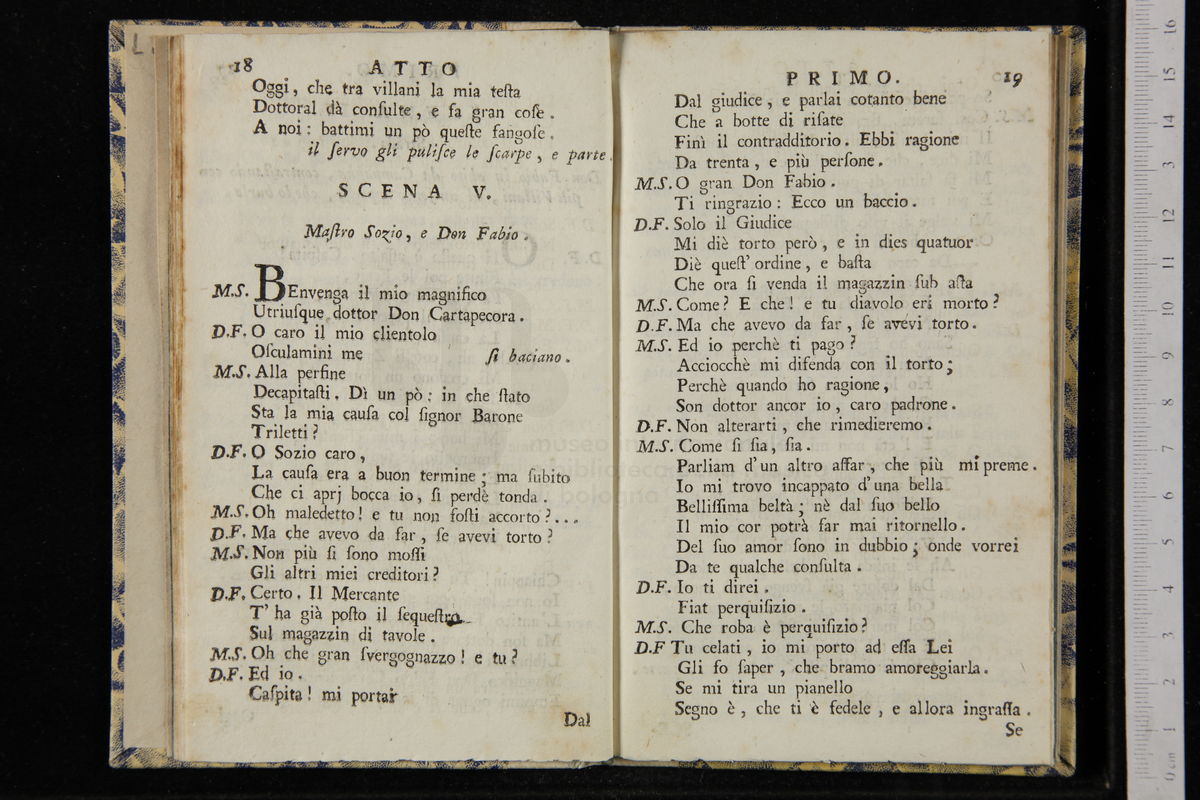 18 ATTO
Oggi, che tra villani la mia teſta
Dottoral dà conſulte, e fa gran coſe.
A noi: battimi un pò queſte fangoſe.
il ſervo gli puliſce le ſcarpe, e parte.
SCENA V.
Maſtro Sozio, e Don Fabio.
M.S. BEnvenga il mio magnifico
Utriuſque dottor Don Cartapecora.
D.F. O caro il mio clientolo
Oſculamini me ſi baciano.
M.S. Alla perfine
Decapitaſti. Dì un pò: in che ſtato
Sta la mia cauſa col ſignor Barone
Triletti?
D.F. O Sozio caro,
La cauſa era a buon termine; ma ſubito
Che ci aprj bocca io, ſi perdè tonda.
M.S. Oh maledetto! e tu non foſti accorto?...
D.F. Ma che avevo da far, ſe avevi torto?
M.S. Non più ſi ſono moſſi
Gli altri miei creditori?
D.F. Certo. Il Mercante
T' ha già poſto il ſequeſtro
Sul magazzin di tavole.
M.S. Oh che gran ſvergognazzo! e tu?
D.F. Ed io.
Caſpita! mi portai
Dal
PRIMO. 19
Dal giudice, e parlai cotanto bene
Che a botte di riſate
Finì il contradditorio. Ebbi ragione
Da trenta, e più perſone.
M.S. O gran Don Fabio.
Ti ringrazio: Ecco un baccio.
D.F. Solo il Giudice
Mi diè torto però, e in dies quatuor
Diè queſt' ordine, e baſta
Che ora ſi venda il magazzin ſub aſta
M.S. Come? E che! e tu diavolo eri morto?
D.F. Ma che avevo da far, ſe avevi torto.
M.S. Ed io perchè ti pago?
Acciocchè mi difenda con il torto;
Perchè quando ho ragione,
Son dottor ancor io, caro padrone.
D.F. Non alterarti, che rimedieremo.
M.S. Come ſi ſia, ſia.
Parliam d'un altro affar, che più mi preme.
Io mi trovo incappato d'una bella
Belliſſima beltà; nè dal ſuo bello
Il mio cor potrà far mai ritornello.
Del ſuo amor ſono in dubbio; onde vorrei
Da te qualche conſulta.
D.F. Io ti direi.
Fiat perquiſizio.
M.S. Che roba è perquiſizio?
D.F Tu celati, io mi porto ad eſſa Lei
Gli fo ſaper, che bramo amoreggiarla.
Se mi tira un pianello
Segno è, che ti è fedele, e allora ingraſſa.
Se